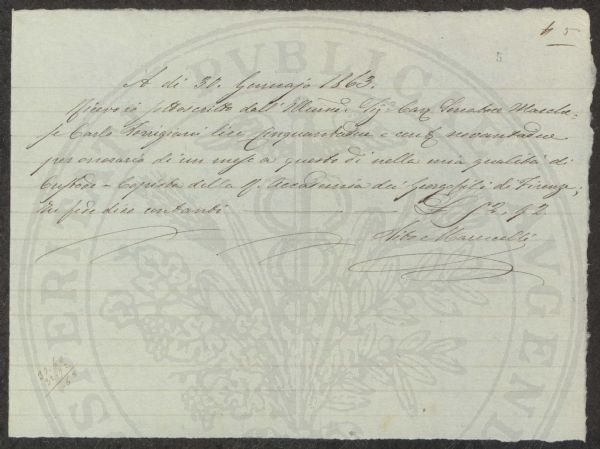 4 5
5
A di 31. Gennajo 1863.
Ricevo io sottoscritto dall' Illmo. Sig. Cav. Senatore March=
se Carlo Torrigiani lire Cinquantadue e cent. novantadue
per onorario di un mese a questo dì nella mia qualità di
Custode - Copista della R. Accademia dei Georgofili di Firenze;
In fede dico contanti £ 52. 92
Mannelli
PUBLICAE
PROSPERITATI
AUGENDAE